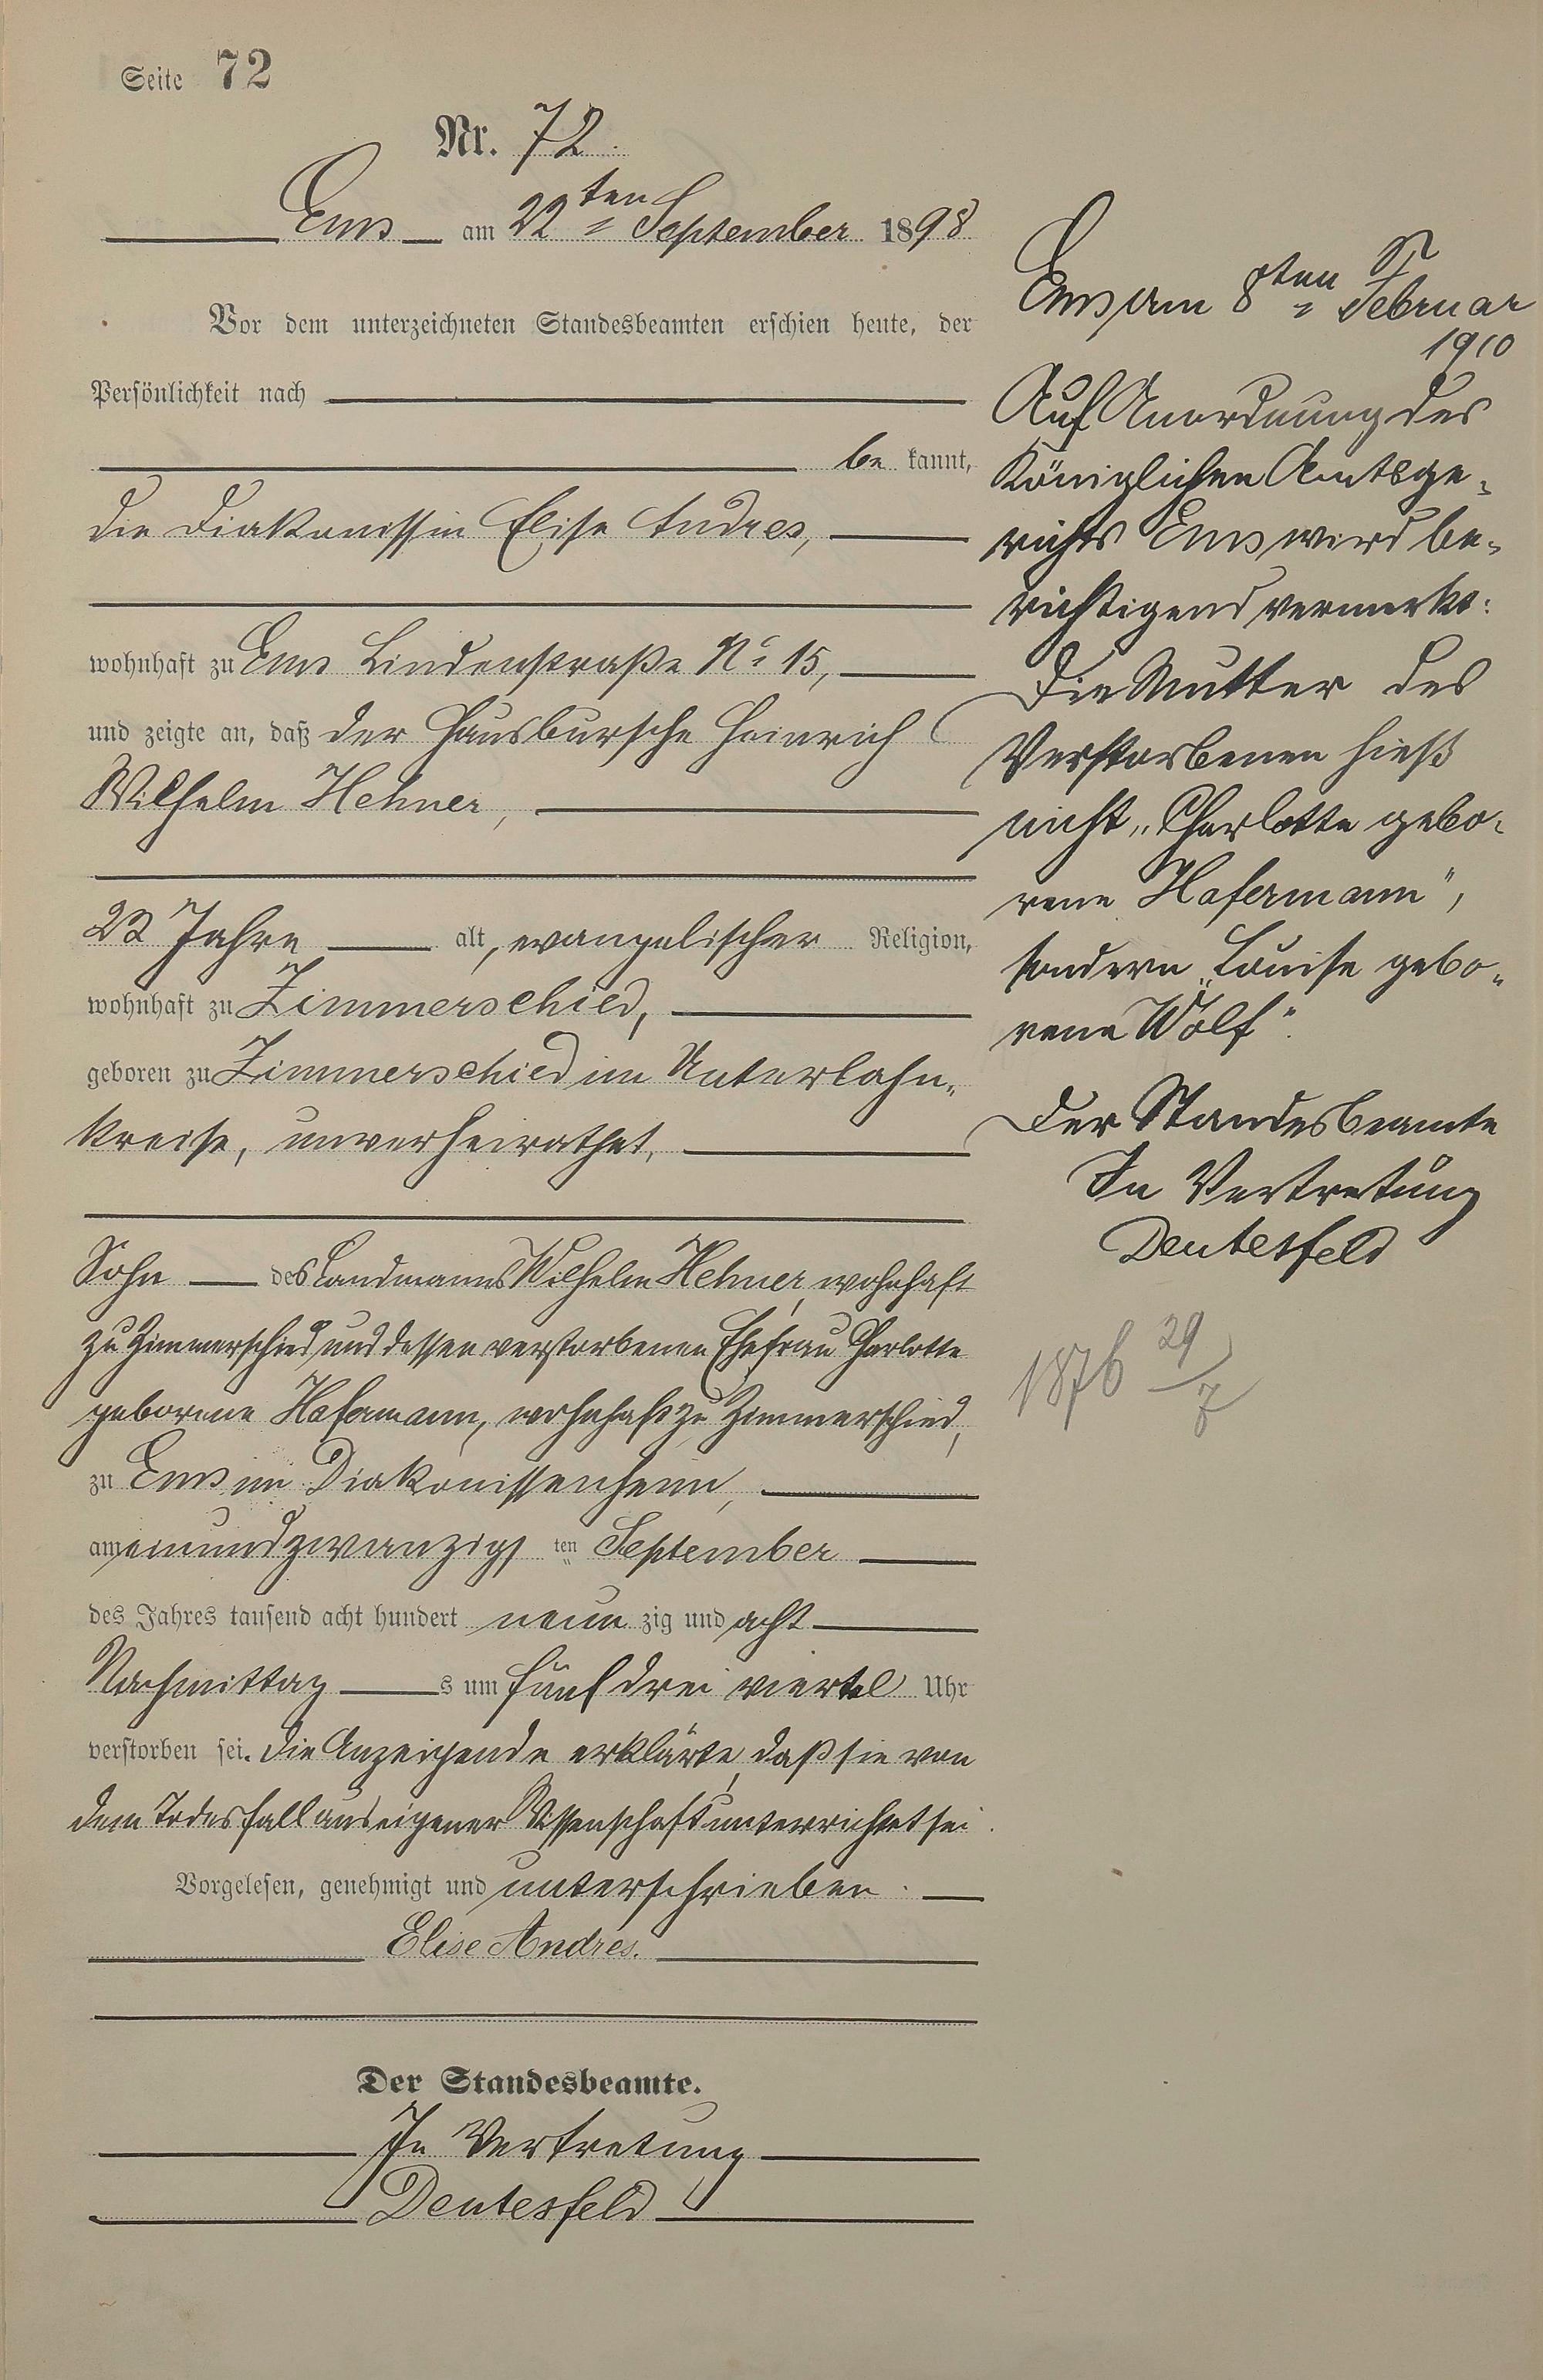 Seite 72
Nr. 72.
Ems am 22ten September 1898
Vor dem unterzeichneten Standesbeamten erschien heute, der
Persönlichkeit nach
be kannt,
die Diakonissin Elise Andres,
wohnhaft zu Ems Lindenstraße No 15,
und zeigte an, daß der Hausbursche Heinrich
Wilhelm Hehner,
Jahre alt, evangelischer Religion,
wohnhaft zu Zimmerschied,
geboren zu Zimmerschied im Unterlahn-
kreise, unverheirathet,
Sohn des Landmanns Wilhelm Hehner, wohnhaft
zu Zimmerschied, und dessen verstorbenen Ehefrau Charlotte
geborene Hafermann, wohnhaft zu Zimmerschied,
zu Ems im Diakonissenheim,
am einundzwanzigs ten September
des Jahres tausend acht hundert neun zig und acht
Nachmittag s um fünf drei viertel Uhr
verstorben sei. Die Anzeigende erklärte, daß sie von
dem Todesfall aus eigener Wissenschaft unterrichtet sei.
Vorgelesen, genehmigt und unterschrieben.
Elise Andres.
Der Standesbeamte.
In Vertretung
Deutesfeld
Ems am 8ten Februar
1910
Auf Anordnung des
Königlichen Amtsge-
richts Ems wird be-
richtigend vermerkt:
Die Mutter des
Verstorbenen hieß
nicht „Charlotte gebo-
rene Hafermann",
sondern „Louise gebo-
rene Wolf".
Der Standesbeamte
In Vertretung
Deutesfeld
1876 29/7